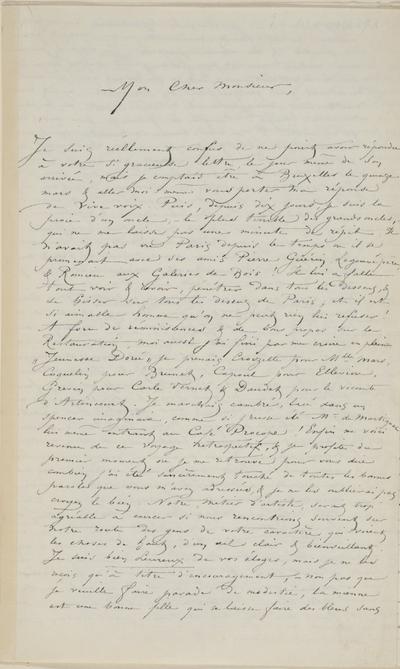 Mon Cher Monsieur,
Je suis réellement confus de ne point avoir répondu
à votre si gracieuse lettre le jour même de son
arrivée, mais je comptais être à Bruxelles le quinze
mars & aller moi même vous porter ma réponse
de vive voix. Puis, depuis dix jours je suis la
proie d'un oncle, le plus terrible des grands oncles,
qui ne me laisse pas une minute de répit. Il
n'avait pas vu Paris depuis le temps où il se
promenait avec ses amis Pierre Guérin,
& Romieu aux Galeries de Bois ! Il lui a fallu
tout voir & savoir, pénétrer dans tous les dessous, &
se hisser sur tous les dessus de Paris, & il est
si aimable homme qu'on ne peut rien lui refuser !
A force de réminiscences & de bons propos sur la
Restauration, moi aussi j'ai fini par me croire en pleine
"Jeunesse Dorée", je prenais Croizette pour Melle Mars,
Coquelin pour Brunet, Capoul pour Elleviou,
Grévin pour Carle Vernet & Daudet pour le vicomte
d'Arlincourt. Je marchais cambré, lacé dans un
spencer imaginaire, comme si j'eusse été Mr de
lui même entrant au Café Procope ! Enfin me voici
revenu de ce voyage rétrospectif, & je profite du
premier moment où je me retrouve pour vous dire
combien j'ai été sincèrement touché de toutes les bonnes
paroles que vous m'avez adressées & je ne les oublierai pas
croyez le bien. Notre métier d'artiste, serait trop
agréable à exercer si nous rencontrions souvent sur
notre route des gens de votre caractère, qui voient
les choses de haut, d'un œil clair & bienveillant.
Je suis bien heureux de vos éloges, mais je ne les
reçois qu'à titre d'encouragement, – non pas que
je veuille faire parade de modestie, la mienne
est une bonne fille qui se laisse faire des bleus sans